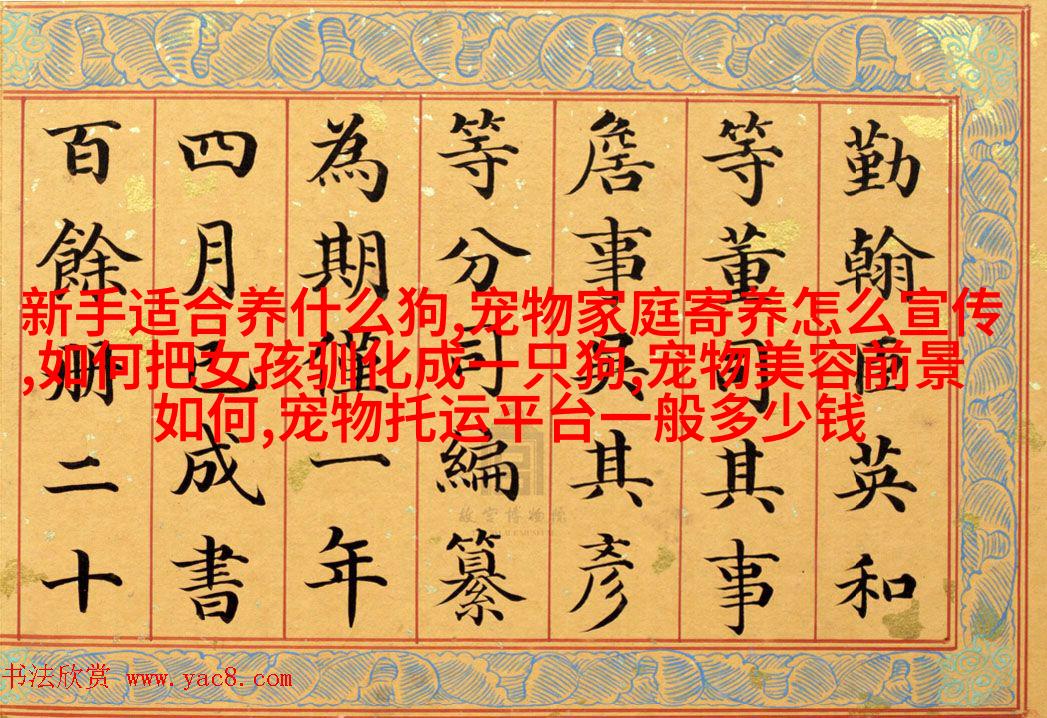 勤翰臣英和
等董司其事
詹事吳其彥
等分司編纂
為期僅一年
四月已成書
百餘冊二十
新手适合养什么狗,宠物家庭寄养怎么宣传
,如何把女孩驯化成一只狗,宠物美容前景
如何,宠物托运平台一般多少钱
故宫博物院
书法欣赏 www.yac8.com